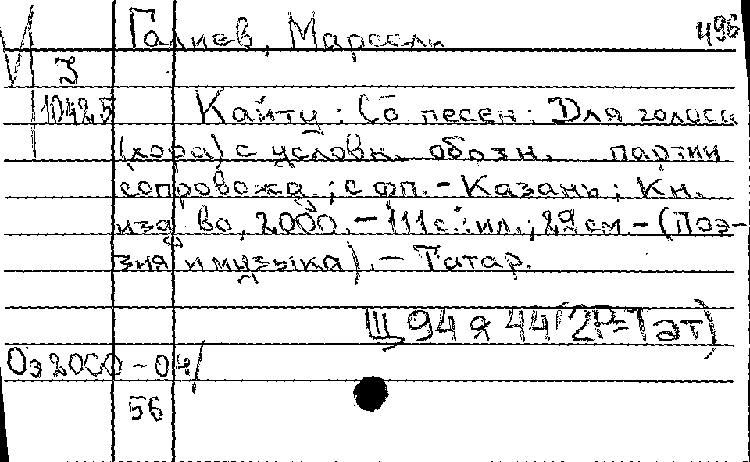 Галиев, Марсель
496
И
З
10425
Кайту : Сб песен : Для голоса
(хора) с условн. обозн. партии
сопровожд.; с фп. - Казань; Кн.
изд во, 2000. - 111 с.: ил.; 29 см - (Поэ-
зия и музыка). - Татар.
Щ 94 я 44 (2Р=Тат)
Оз 2000 - 04/
56